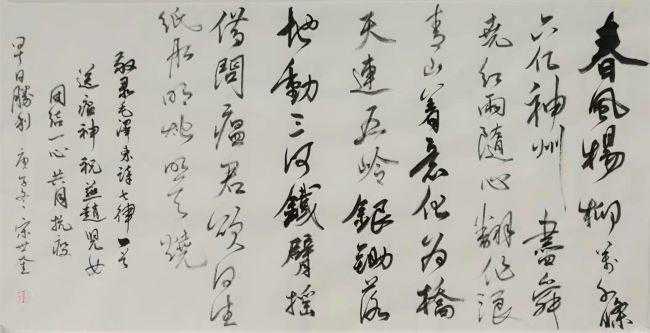 春風楊柳萬千條
六亿神州盡舜
堯紅雨隨心翻作浪
青山著意化為橋
天連五岭銀鋤落
地動三河鐵臂摇
借問瘟君欲何往
紙船明燭照天燒
敬录毛澤東詩七律一首
送瘟神祝燕趙兒女
团结一心共同抗疫
早日勝利 庚子冬